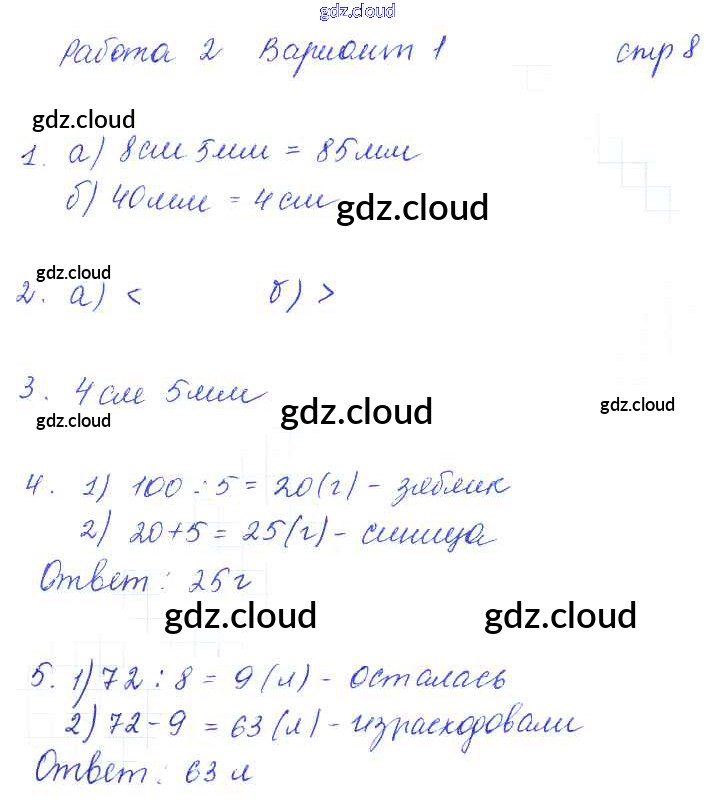 gdz.cloud
Работа 2 Вариант 1 стр 8
gdz.cloud
1. а) 8см 5мм = 85мм
б) 40мм = 4см
gdz.cloud
gdz.cloud
2. а) < б) >
3. 4см 5мм
gdz.cloud gdz.cloud gdz.cloud
4. 1) 100 : 5 = 20(г) - зяблик
2) 20+5 = 25(г) - синица
Ответ: 25г
gdz.cloud gdz.cloud
5. 1) 72 : 8 = 9 (л) - осталась
2) 72-9 = 63 (л) - израсходовали
Ответ: 63 л